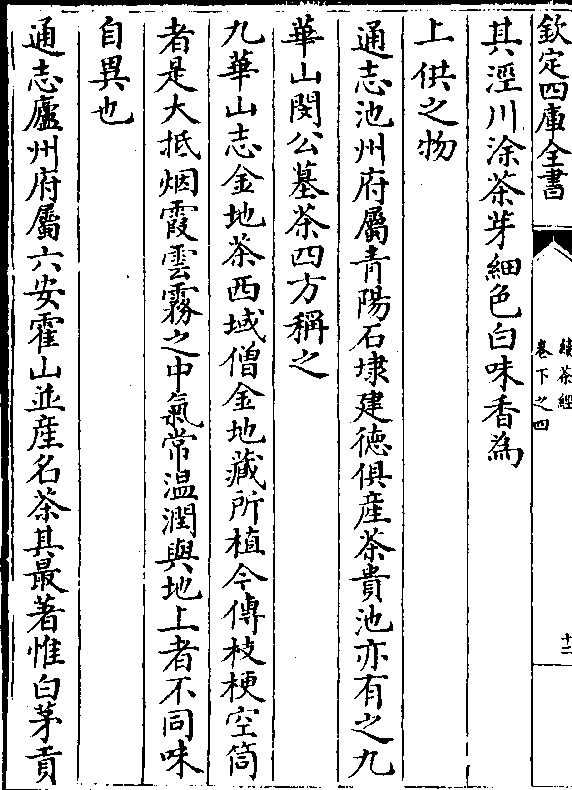 欽定四庫全書
續茶經
卷下之四
十二
其涇川涂茶芽細色白味香為
上供之物
通志池州府屬青陽石埭建德俱産茶貴池亦有之九
華山閔公墓茶四方稱之
九華山志金地茶西域僧金地藏所植今傳枝梗空筒
者是大抵烟霞雲霧之中氣常温潤與地上者不同味
自異也
通志廬州府屬六安霍山並産名茶其最著惟白茅貢